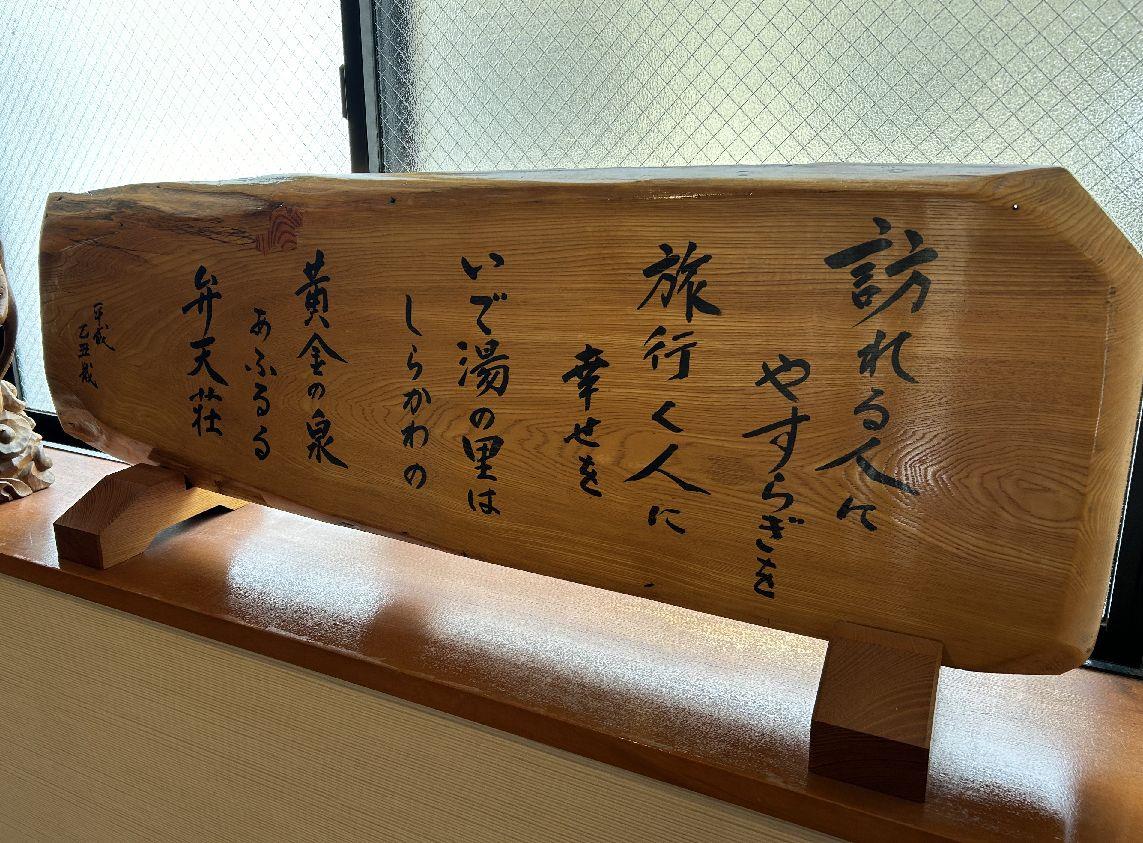 訪れる人に
やすらぎを
旅行く人に
幸せを
いで湯の里は
しらかわの
黄金の泉
あふるる
弁天荘
平成
乙丑歳